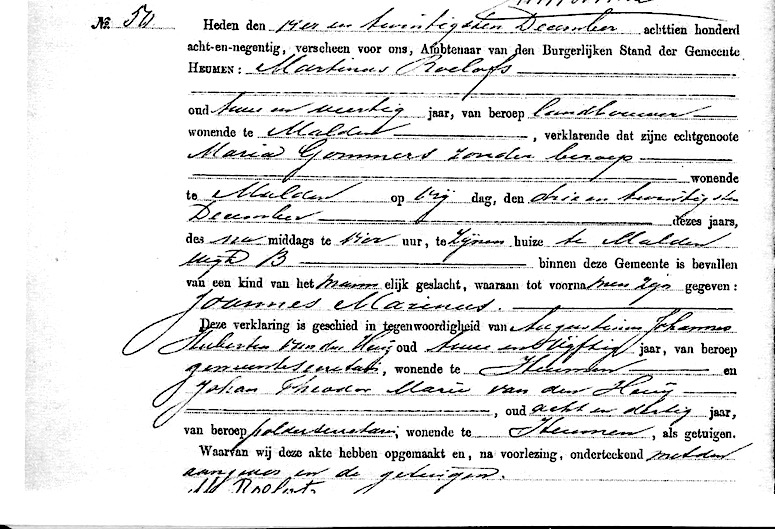 № 50 Heden den vier en twintigsten December achttien honderd
acht-en-negentig, verscheen voor ons, Ambtenaar van den Burgerlijken Stand der Gemeente
HEUMEN: Martinus Roelofs
oud twee en veertig jaar, van beroep landbouwer
wonende te Malden, verklarende dat zijne echtgenoote
Maria Gommers zonder beroep
wonende
te Malden op vrij dag, den drie en twintigsten
December dezes jaars,
des na middags te vier uur, te zijnen huize te Malden
wijk B binnen deze Gemeente is bevallen
van een kind van het mann elijk geslacht, waaraan tot voorna men zijn gegeven:
Joannes Marinus.
Deze verklaring is geschied in tegenwoordigheid van Augustinus Johannes
Hubertus van der oud twee en vijftig jaar, van beroep
gemeentesecretaris, wonende te Heumen en
Johan Theodor Marie van der
, oud acht en dertig jaar,
van beroep poldersecretaris, wonende te Heumen, als getuigen.
Waarvan wij deze akte hebben opgemaakt en, na voorlezing, onderteekend met den
aangever en de getuigen.
M Roelofs